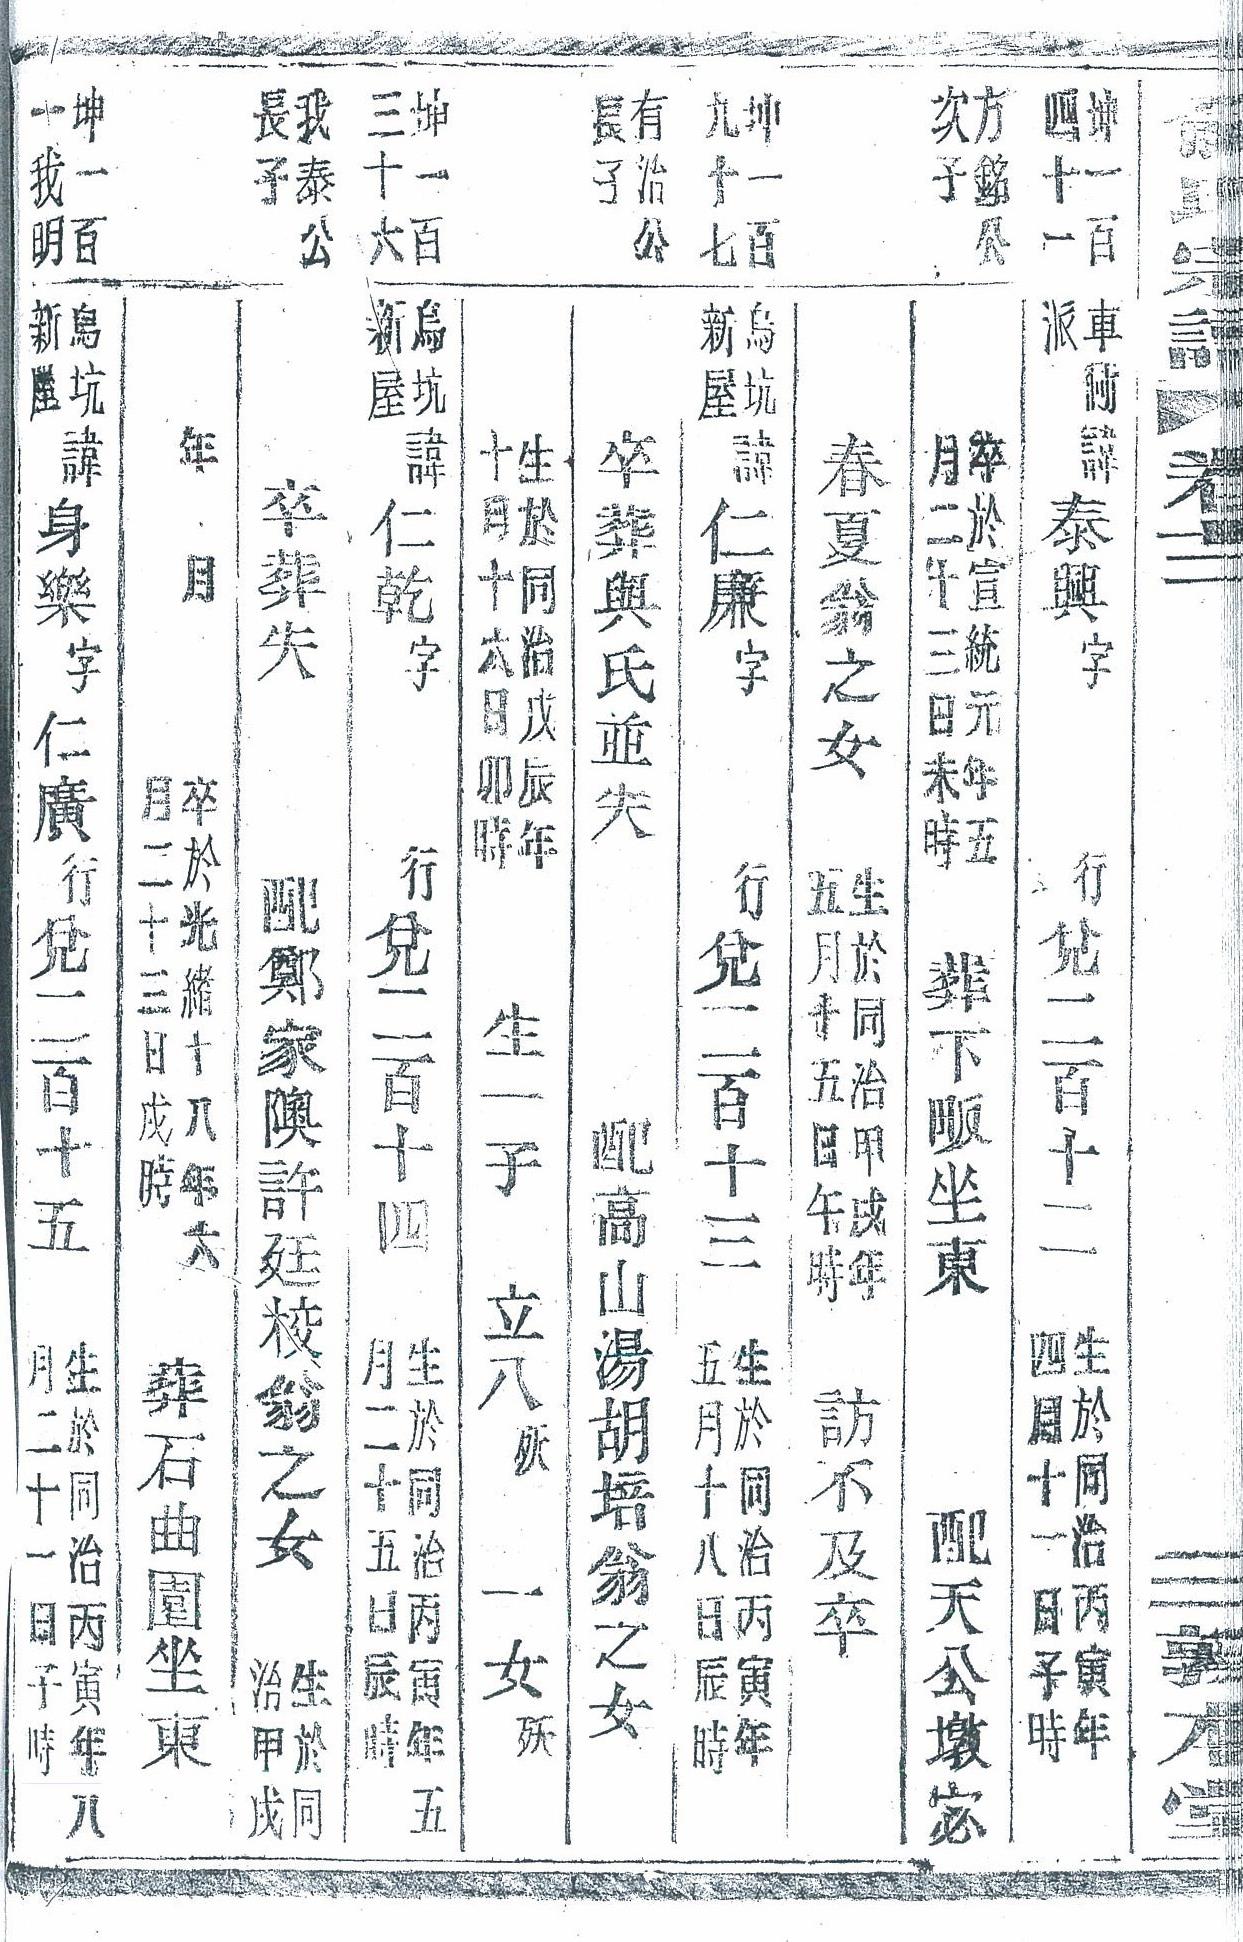 氏宗譜 卷二
敦本堂
坤一百
四十一
車衕
派
諱泰興字
行兌二百十二
生於同治丙寅年
四月十一日子時
方銘公
次子
卒於宣統元年五
月二十三日未時
葬下畈坐東
配天公墩宓
春夏翁之女
生於同治甲戌年
五月十五日午時
訪不及卒
坤一百
九十七
烏坑
新屋
諱仁廉字
行兌二百十三
生於同治丙寅年
五月十八日辰時
有治公
長子
卒葬與氏並失
配高山湯胡培翁之女
生於同治戊辰年
十月十六日卯時
生一子
立八殀
一女殀
坤一百
三十六
烏坑
新屋
諱仁乾字
行兌二百十四
生於同治丙寅年五
月二十五日辰時
我泰公
長子
卒葬失
配鄭家隩許廷校翁之女
生於同
治甲戌
年 月
卒於光緒十八年六
月二十三日戌時
葬石曲園坐東
坤一百
十我明
烏坑
新屋
諱身樂字仁廣行兌二百十五
生於同治丙寅年八
月二十一日子時